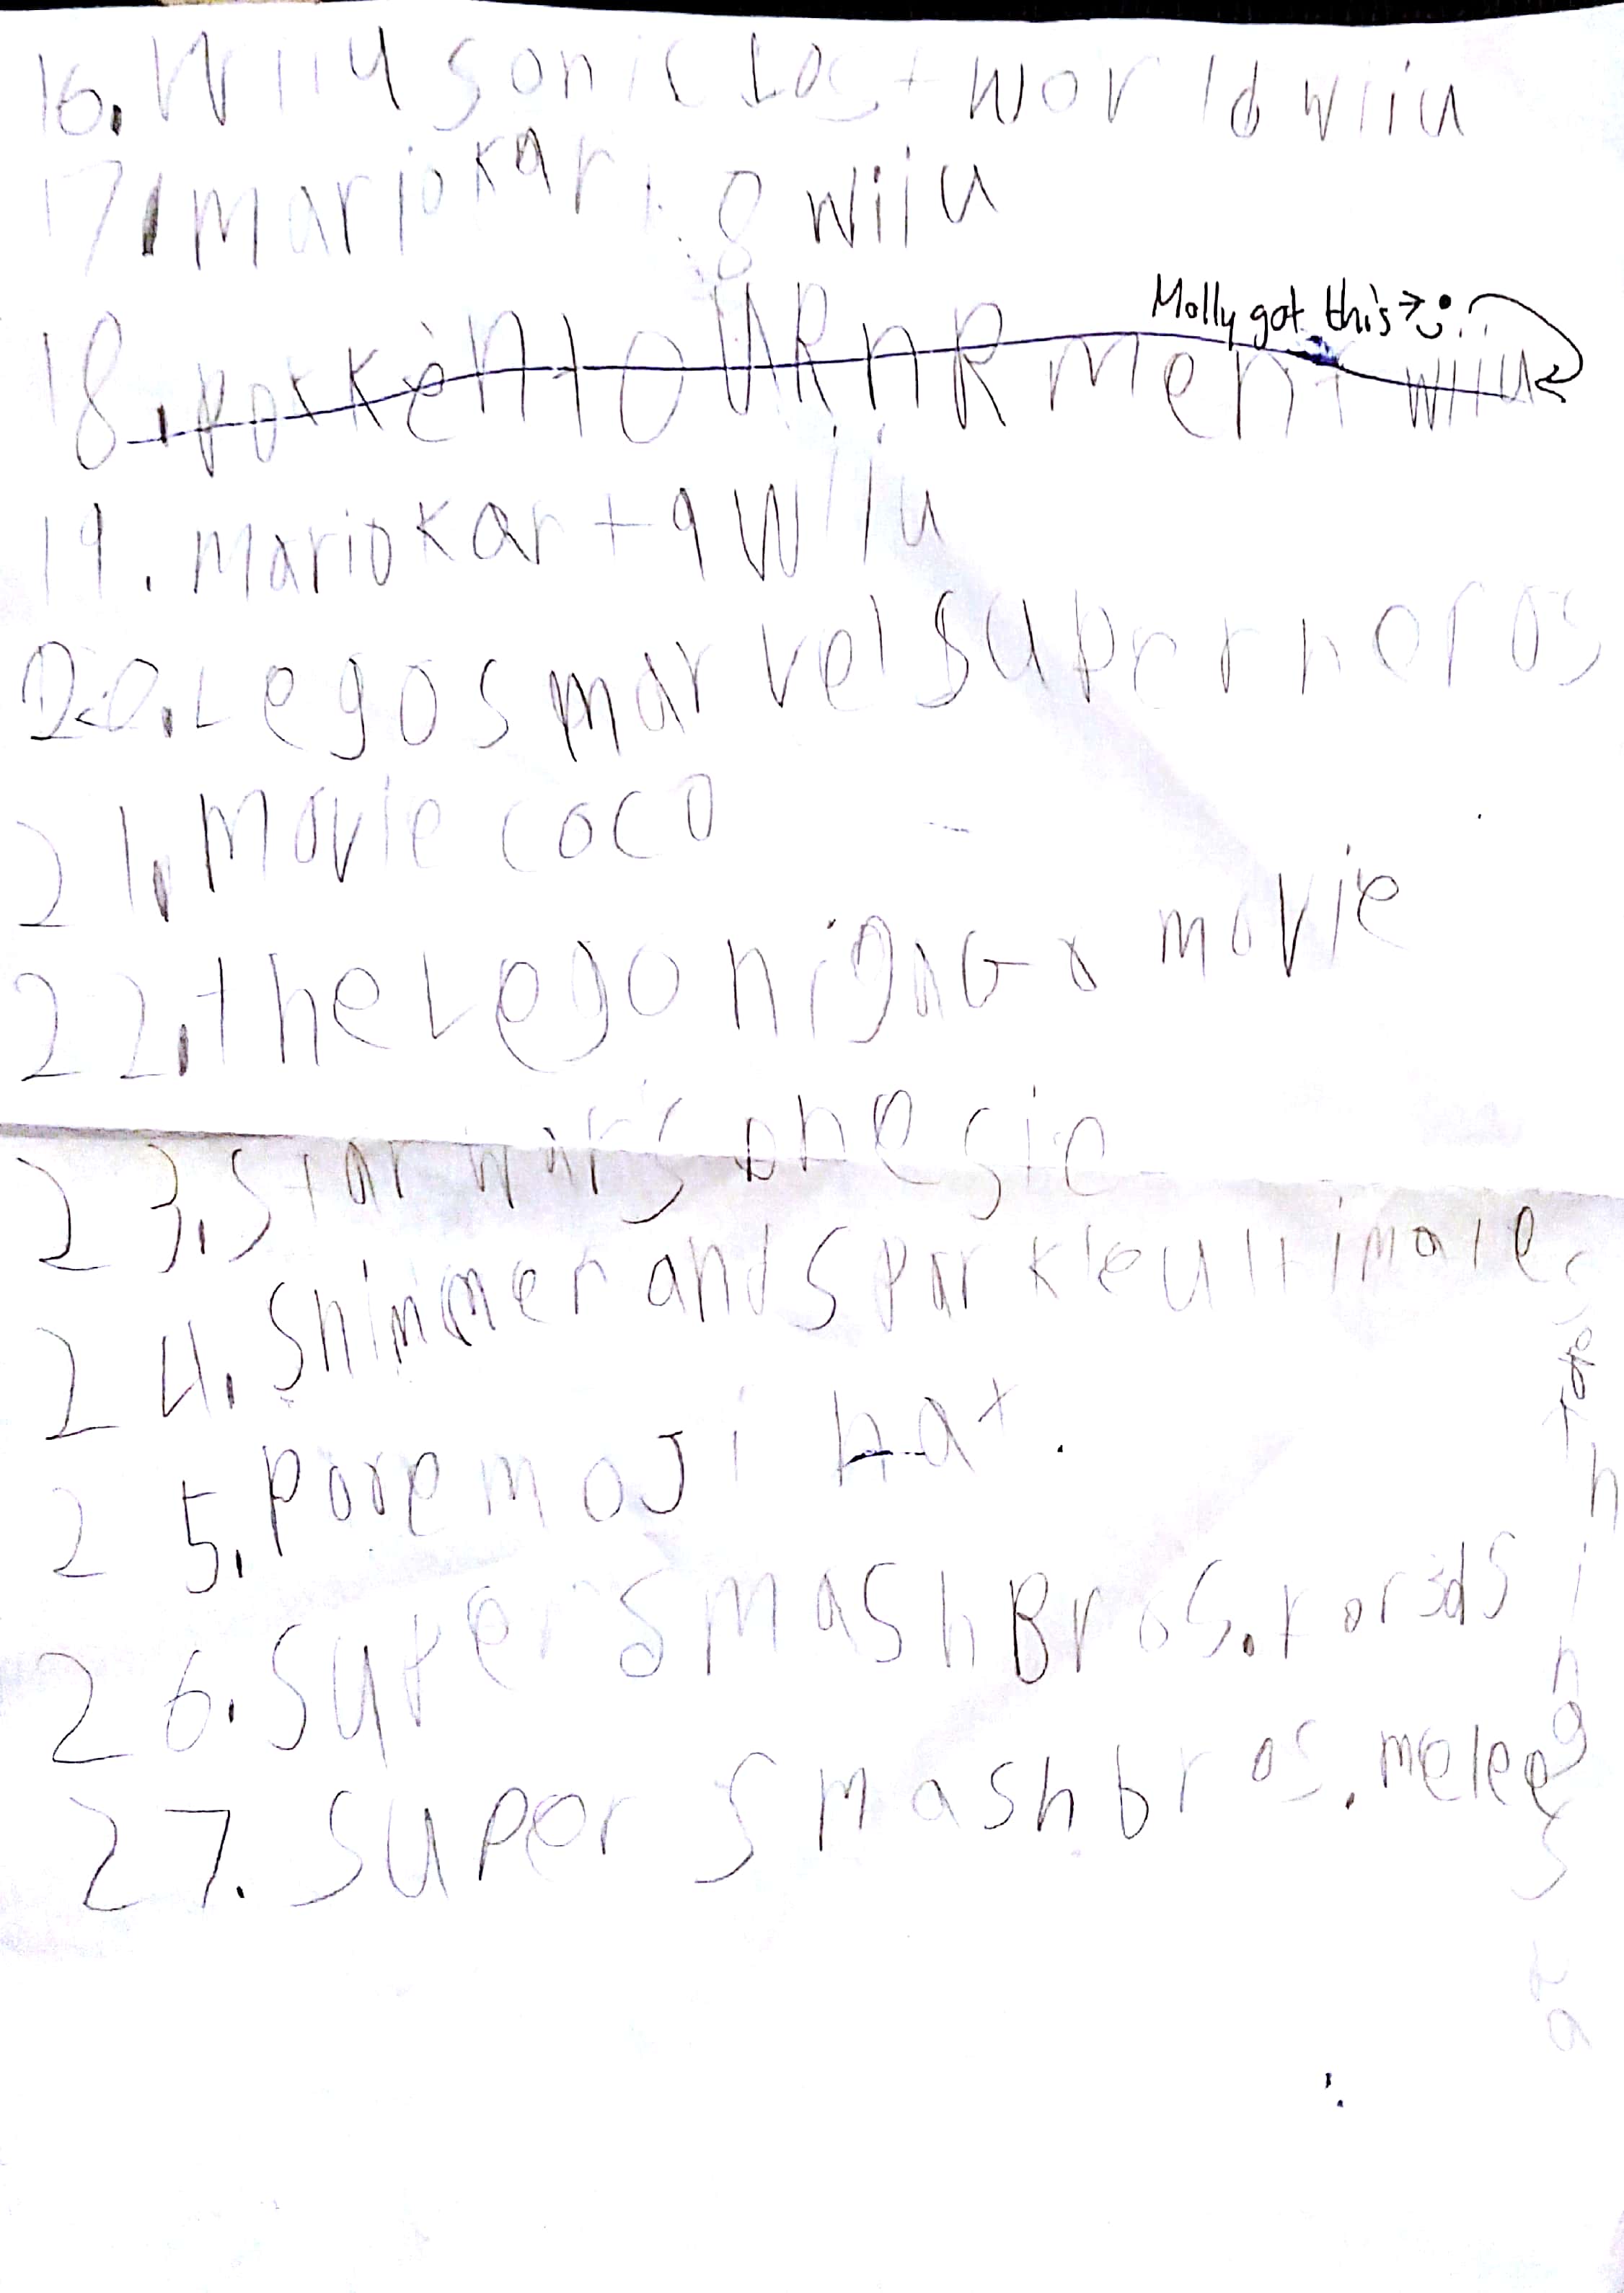 16. Wiiu sonic Lost world wiiu
17. mariokart 8 wiiu
Molly got this → :)
18. pokkentOURnRment wiiu
19. mariokart 9 wiiu
20. Legos marvel superheros
21. movie coco
22. the Lego nigago movie
23. star wars onesie
24. Shimmer and Sparkle ultimate
25. poopemoji hat.
26. Super Smash Bros. for 3ds
27. super smash bros. melee
Things